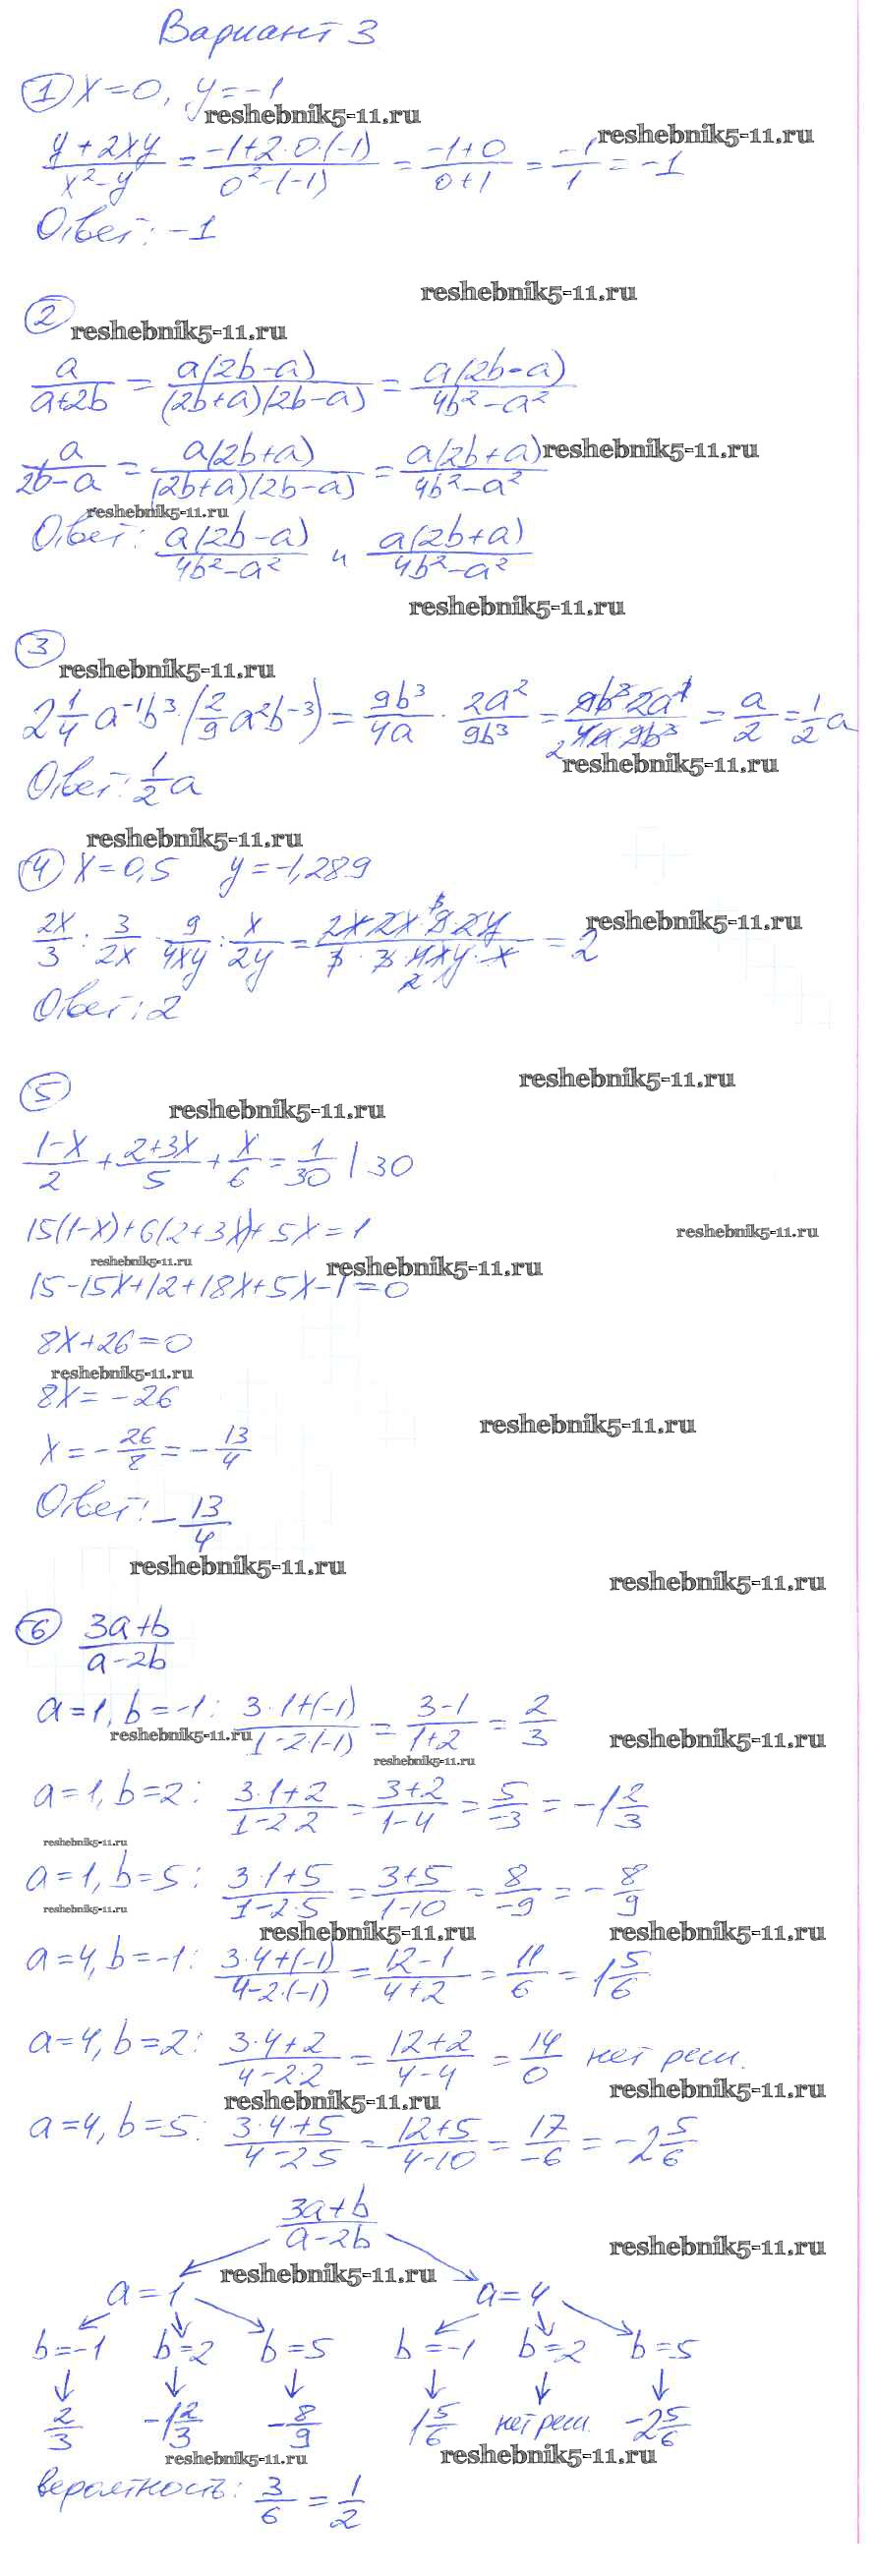 Вариант 3
① x=0, y=-1
reshebnik5-11.ru
reshebnik5-11.ru
(y+2xy)/(x²-y) = (-1+2·0·(-1))/(0²-(-1)) = (-1+0)/(0+1) = -1/1 = -1
Ответ: -1
reshebnik5-11.ru
②
reshebnik5-11.ru
a/(a+2b) = a(2b-a)/((2b+a)(2b-a)) = a(2b-a)/(4b²-a²)
a/(2b-a) = a(2b+a)/((2b+a)(2b-a)) = a(2b+a)/(4b²-a²)
reshebnik5-11.ru
reshebnik5-11.ru
Ответ: a(2b-a)/(4b²-a²) и a(2b+a)/(4b²-a²)
reshebnik5-11.ru
③
reshebnik5-11.ru
2 1/4 a⁻¹b³·(2/9 a²b⁻³) = 9b³/4a · 2a²/9b³ = = a/2 = 1/2 a
reshebnik5-11.ru
Ответ: 1/2 a
reshebnik5-11.ru
④ x=0,5 y=-1,289
reshebnik5-11.ru
2x/3 : 3/2x · 9/4xy : x/2y = 2x·2x·9·2y/3·3·4xy·x = 2
Ответ: 2
reshebnik5-11.ru
⑤
reshebnik5-11.ru
(1-x)/2 + (2+3x)/5 + x/6 = 1/30 | 30
15(1-x)+6(2+3x)+5x=1
reshebnik5-11.ru
reshebnik5-11.ru
reshebnik5-11.ru
15-15x+12+18x+5x-1=0
8x+26=0
reshebnik5-11.ru
8x=-26
reshebnik5-11.ru
x=-26/8=-13/4
Ответ: -13/4
reshebnik5-11.ru
reshebnik5-11.ru
⑥ (3a+b)/(a-2b)
a=1, b=-1: (3·1+(-1))/(1-2·(-1)) = (3-1)/(1+2) = 2/3
reshebnik5-11.ru
reshebnik5-11.ru
reshebnik5-11.ru
a=1, b=2: (3·1+2)/(1-2·2) = (3+2)/(1-4) = 5/-3 = -1 2/3
reshebnik5-11.ru
a=1, b=5: (3·1+5)/(1-2·5) = (3+5)/(1-10) = 8/-9 = -8/9
reshebnik5-11.ru
reshebnik5-11.ru
reshebnik5-11.ru
a=4, b=-1: (3·4+(-1))/(4-2·(-1)) = (12-1)/(4+2) = 11/6 = 1 5/6
a=4, b=2: (3·4+2)/(4-2·2) = (12+2)/(4-4) = 14/0 нет реш.
reshebnik5-11.ru
reshebnik5-11.ru
a=4, b=5: (3·4+5)/(4-2·5) = (12+5)/(4-10) = 17/-6 = -2 5/6
(3a+b)/(a-2b)
reshebnik5-11.ru
reshebnik5-11.ru
a=1 a=4
b=-1 b=2 b=5 b=-1 b=2 b=5
2/3 -1 2/3 -8/9 1 5/6 нет реш. -2 5/6
reshebnik5-11.ru
reshebnik5-11.ru
вероятность: 3/6 = 1/2